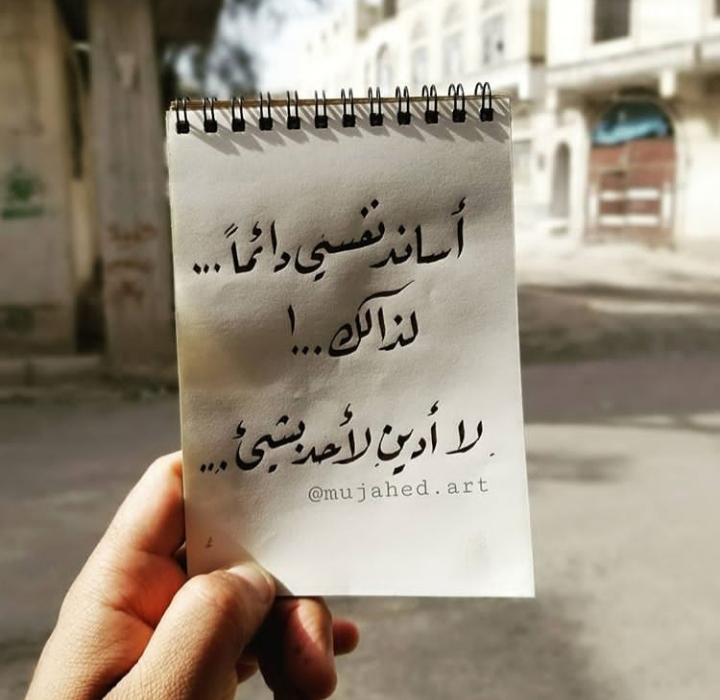 أساند نفسي دائماً...
لذالك...!
لا أدين لأحد بشيئ...
@mujahed.art